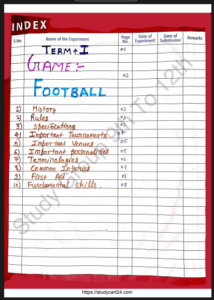 INDEX
S.No. Name of the Experiment Page No. Date of Experiment Date of Submission Remarks
TERM-I
GAME:-
FOOTBALL
1) History
2) Rules
3) Specifications
4) Important Tournaments
5) Important Venues
6) Important personalities
7) Terminologies
8) Common Injuries
9) First Aid
10) Fundamental skills.
Study Group 9th To 12th
https://studycart24.com